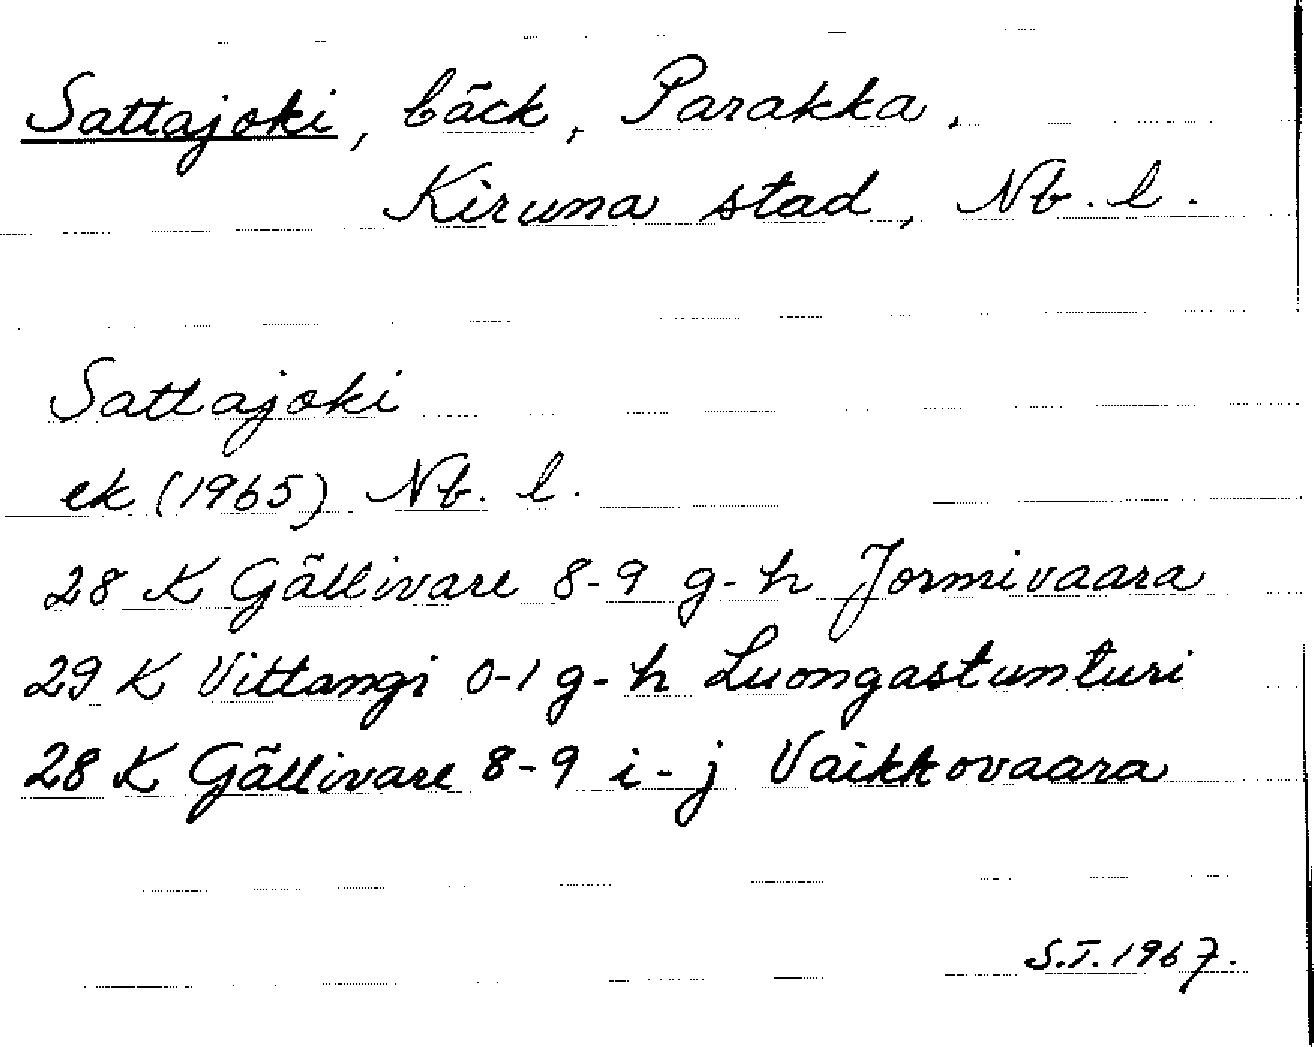 Sattajoki, bäck, Parakka,
Kiruna stad, Nb. l.
Sattajoki
ek (1965) Nb. l.
28 K Gällivare 8-9 g-h Jormivaara
29 K Vittangi 0-1 g-h Luongastunturi
28 K Gällivare 8-9 i-j Vaikkovaara
S.T. 1967.